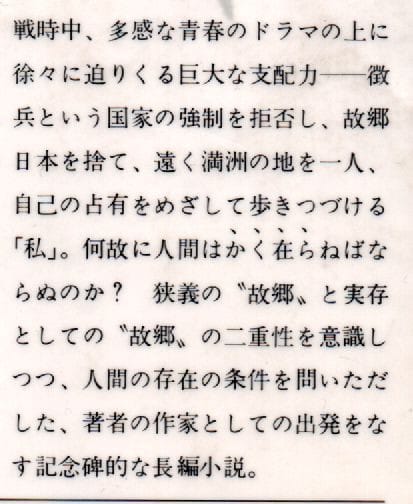 戦時中、多感な青春のドラマの上に
徐々に迫りくる巨大な支配力──徴
兵という国家の強制を拒否し、故郷
日本を捨て、遠く満洲の地を一人、
自己の占有をめざして歩きつづける
「私」。何故に人間はかく在らねばな
らぬのか？　狭義の〝故郷〟と実存
としての〝故郷〟の二重性を意識し
つつ、人間の存在の条件を問いただ
した、著者の作家としての出発をな
す記念碑的な長編小説。